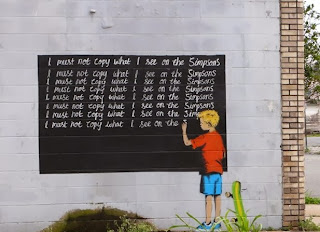 I must not copy what I see on the Simpsons
I must not copy what I see on the Simpsons
I must not copy what I see on the Simpsons
I must not copy what I see on the Simpsons
I must not copy what I see on the Simpsons
I must not copy what I see on the Simpsons
I must not copy what I see on the